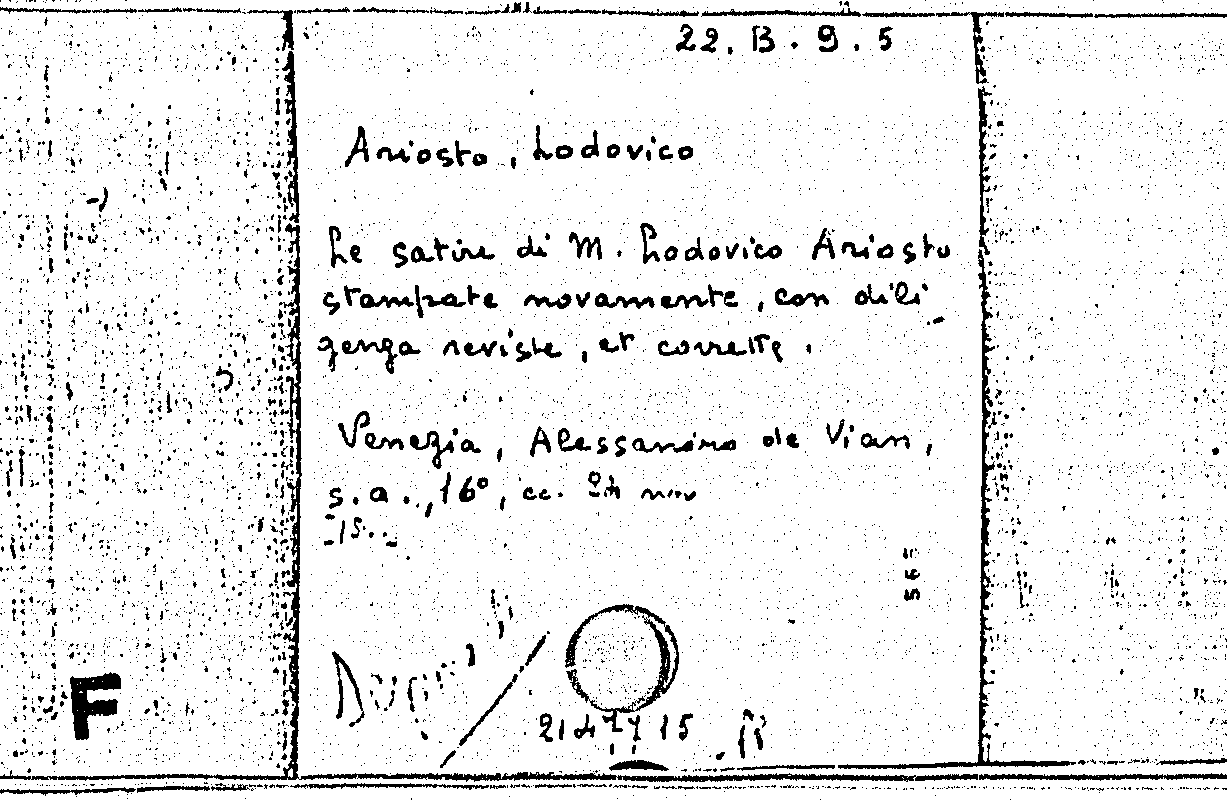 22. B. 9. 5
Ariosto, Lodovico
Le satire di M. Lodovico Ariosto
stampate novamente, con dili
genza reviste, et corrette.
Venezia, Alessandro de Vian,
s.a., 16°, cc. nov
15..
F